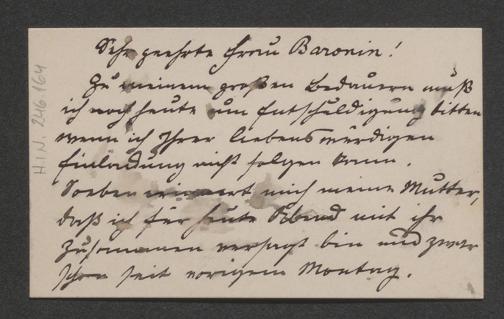 Sehr geehrte Frau Baronin!
Zu meinem großen Bedauern muß
ich noch heute um Entschuldigung bitten
wenn ich Ihrer liebenswürdigen
Einladung nicht folgen kann.
Soeben erinnert mich meine Mutter,
daß ich für heute Abend mit ihr
zusammen versagt bin und zwar
schon seit vorigem Montag.
H.I.N. 246164